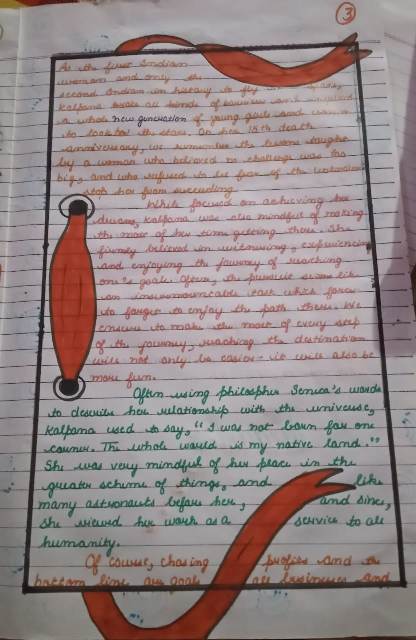 3
As the first Indian
woman and only the
second Indian in history to fly in space,
Kalpana broke all kinds of barriers and
a whole new generation of young girls and women
to look to the stars. On her 15th death
anniversary, we remember the lessons taught
by a woman who believed no challenge was too
big, and who refused to let fear of the unknown
stop her from succeeding.
While focused on achieving her
dreams, Kalpana was also mindful of making
the most of her time getting there. She
firmly believed in witnessing, experiencing
and enjoying the journey of reaching
one's goals. Often, the pursuit seems like
an insurmountable task which forces
to forget to enjoy the path there. We
ensure to make the most of every step
of the journey, reaching the destination
will not only be easier - it will also be
more fun.
Often using philosopher Seneca's words
to describe her relationship with the universe,
Kalpana used to say, "I was not born for one
corner. The whole world is my native land."
She was very mindful of her place in the
greater scheme of things, and like
many astronauts before her, and since,
she viewed her work as a service to all
humanity.
Of course, chasing profits and the
bottom line are goals all businesses and